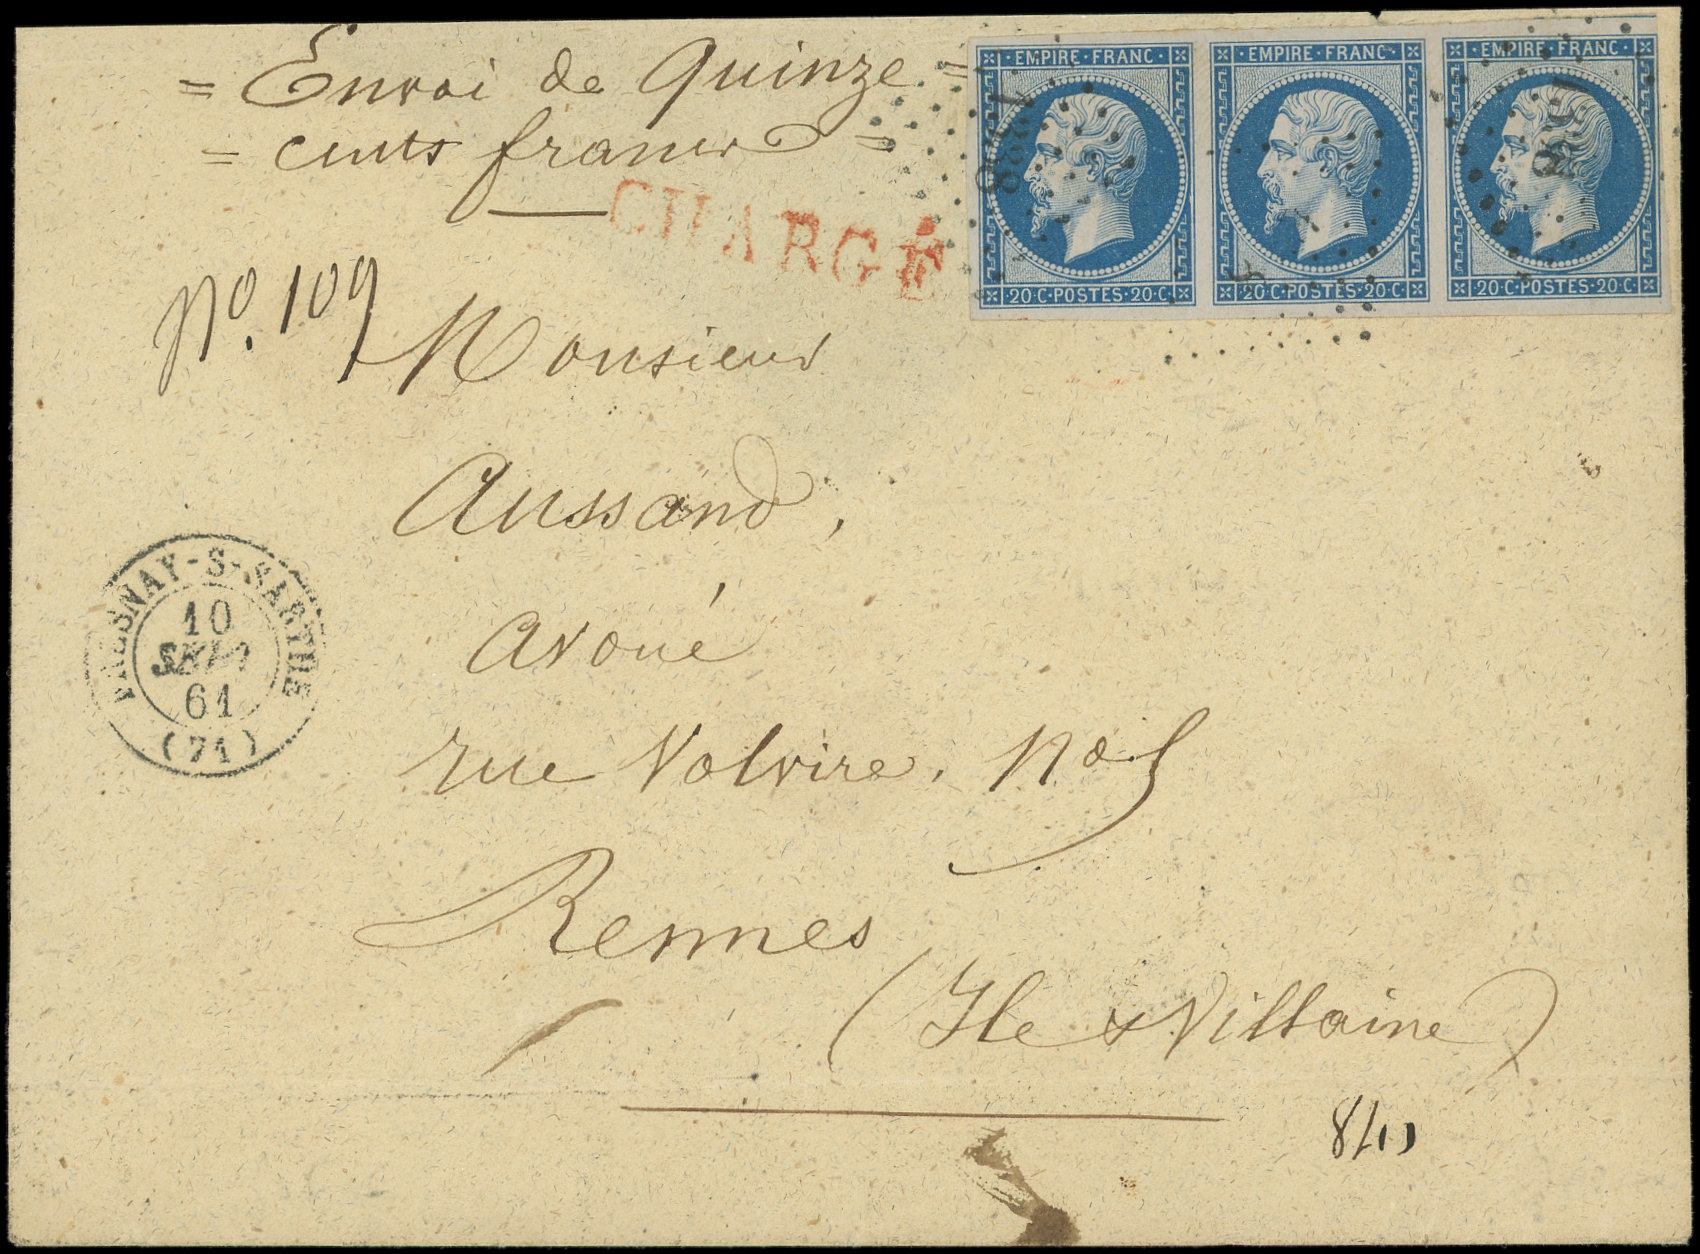 = Envoi de Quinze =
= cents francs =
CHARGÉ
EMPIRE·FRANC·
20·C·POSTES·20·C·
EMPIRE·FRANC·
20·C·POSTES·20·C·
EMPIRE·FRANC·
20·C·POSTES·20·C·
No. 109
Monsieur
Aussand,
avoué
rue Volvire. No 5
Rennes
(Ile & Villaine)
FRESNAY-S-SARTHE
10
SEPT
61
(71)